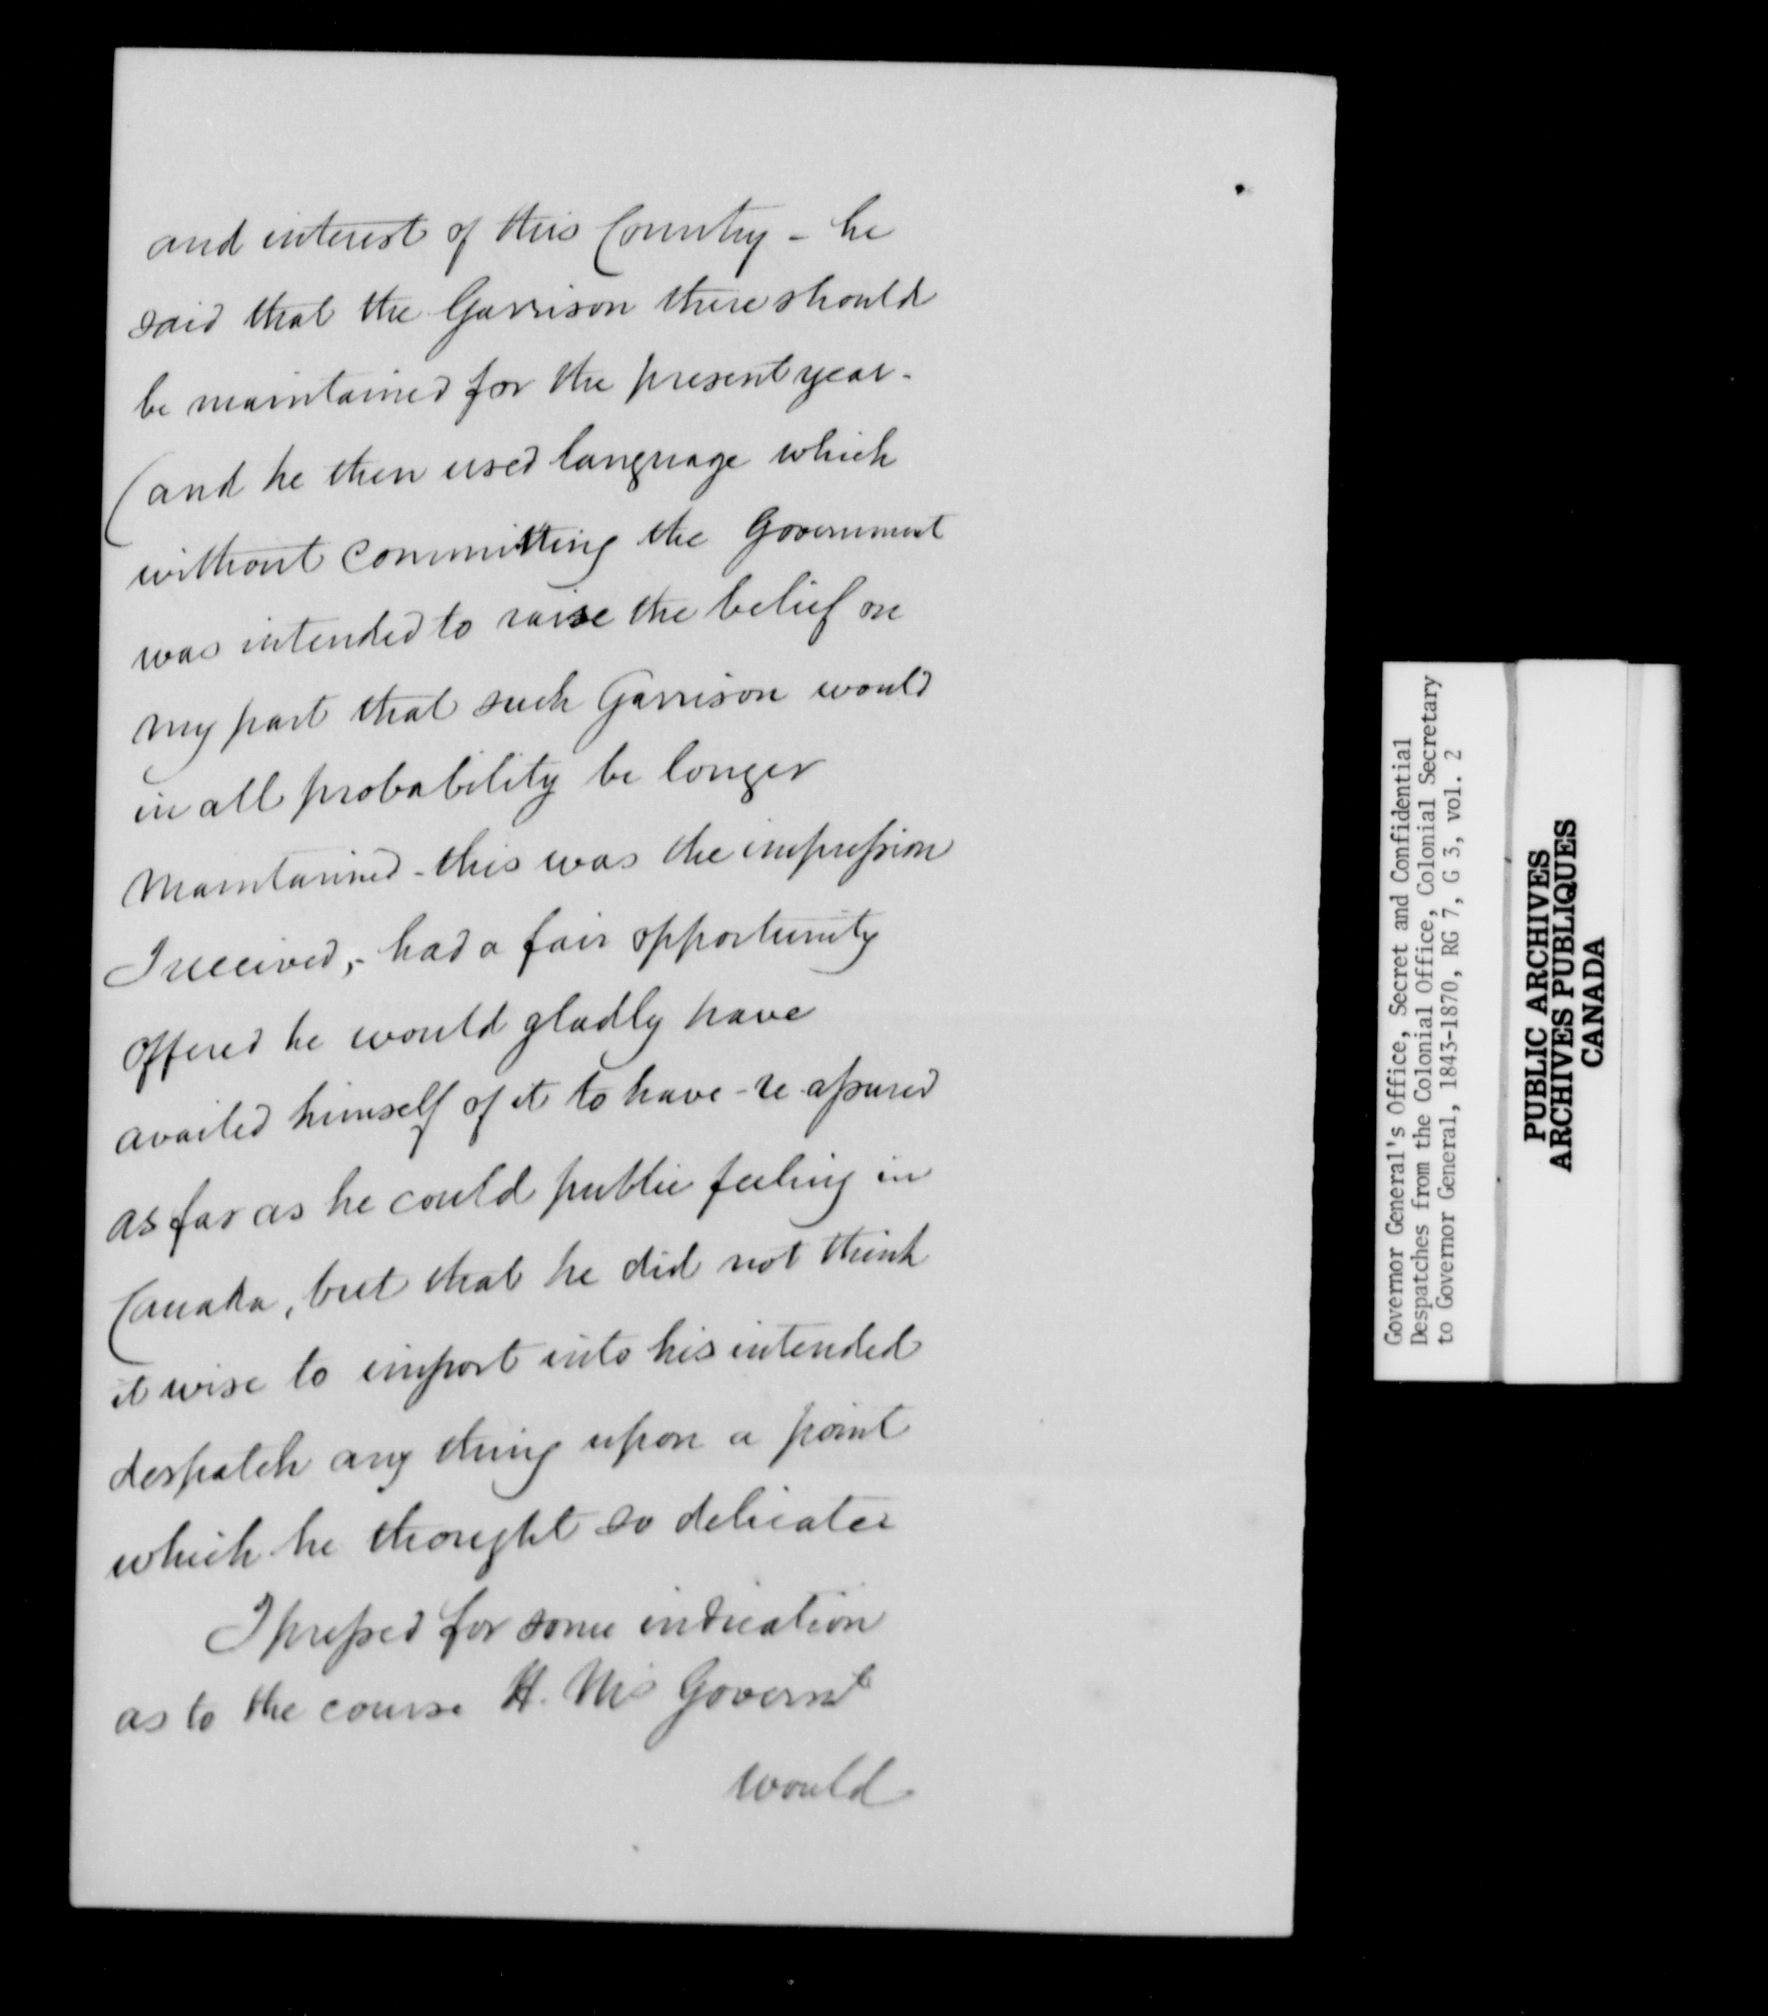 and interest of this Country - he
said that the Garrison there should
be maintained for the present year -
(and he then used language which
without committing the Government
was intended to raise the belief on
my part that such Garrison would
in all probability be longer
maintained - this was the impression
I received, - had a fair opportunity
offered he would gladly have
availed himself of it to have - re assured
as far as he could public feeling in
Canada, but that he did not think
it wise to import into his intended
despatch any thing upon a point
which he thought so delicate
I pressed for some indication
as to the course H. M's Governt
would
Governor General's Office, Secret and Confidential
Despatches from the Colonial Office, Colonial Secretary
to Governor General, 1843-1870, RG 7, G 3, vol. 2
PUBLIC ARCHIVES
ARCHIVES PUBLIQUES
CANADA